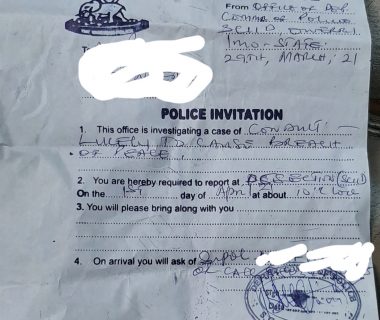 From OFFICE OF DEP
COMM OF POLICE
SCIID OWERRI
IMO-STATE.
29TH, MARCH, 21
To
POLICE INVITATION
1. This office is investigating a case of CONDUIT -
LIKELY TO CAUSE BREACH
OF PEACE.
2. You are hereby required to report at SECTION (SCIID)
On the 1st day of April at about 10 O'clock
3. You will please bring along with you
4. On arrival you will ask of
OC